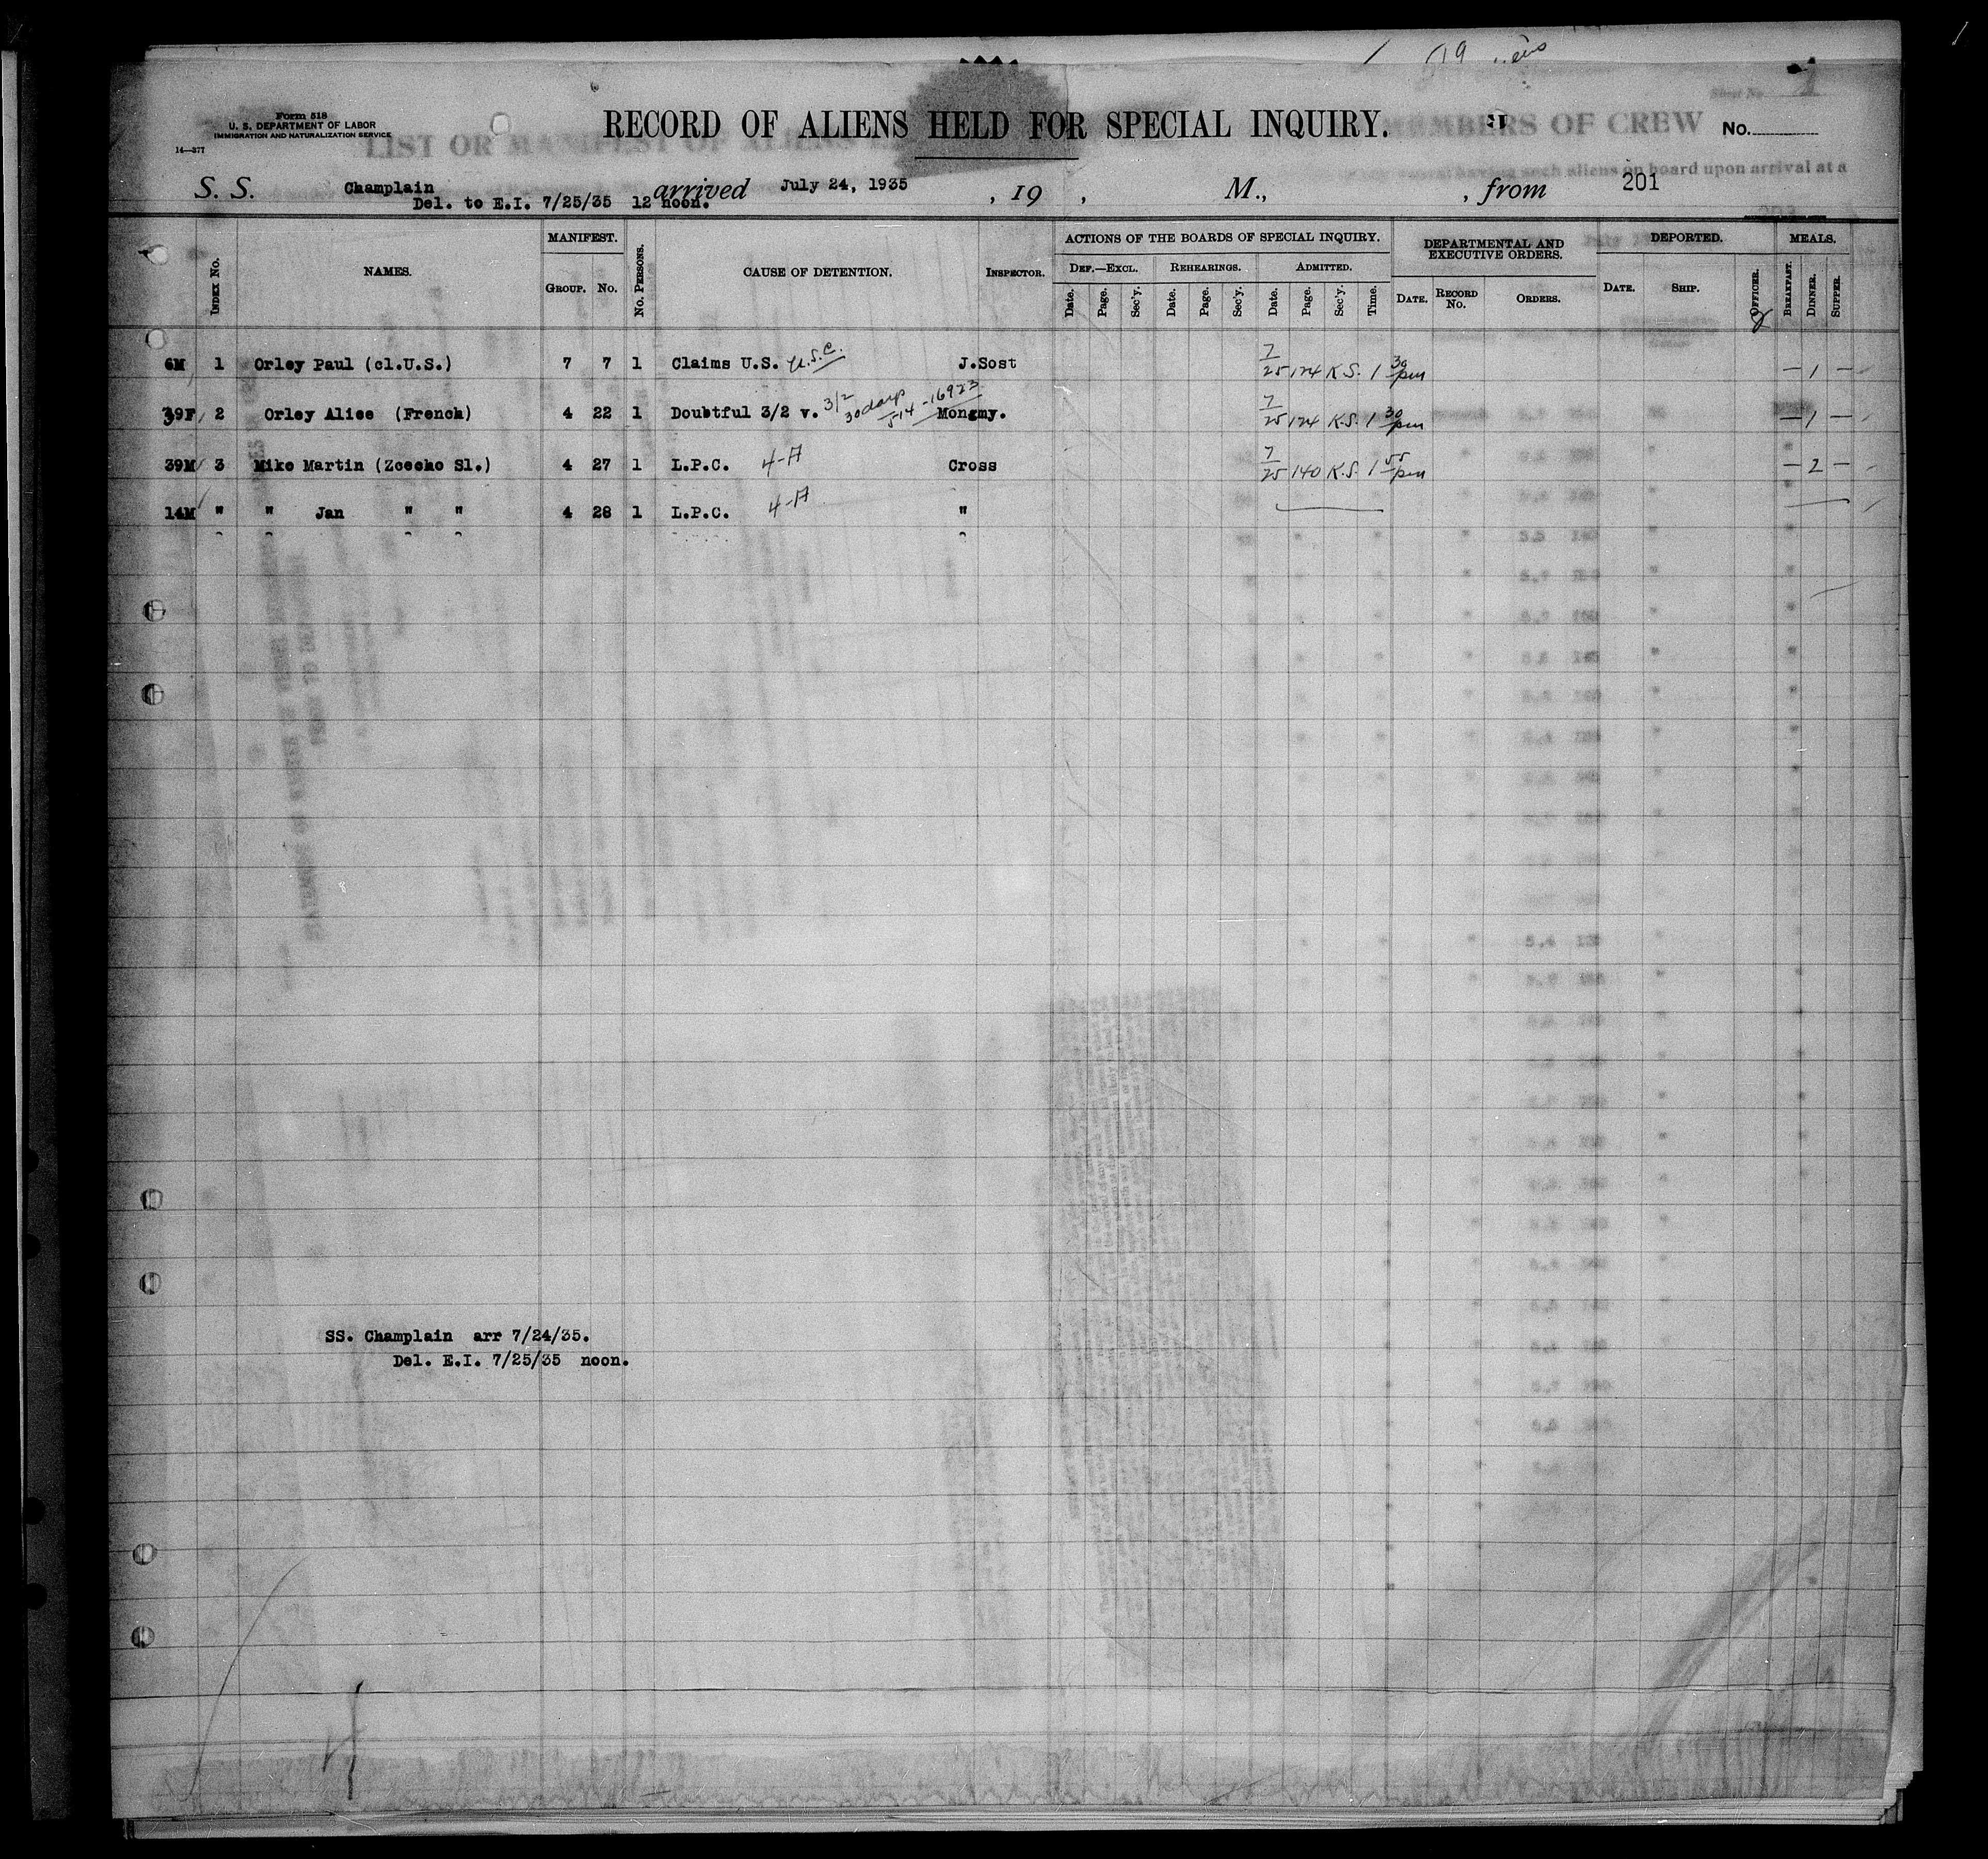 Form 518
U. S. DEPARTMENT OF LABOR
IMMIGRATION AND NATURALIZATION SERVICE
14—377
RECORD OF ALIENS HELD FOR SPECIAL INQUIRY.
LIST OR MANIFEST OF ALIENS
MEMBERS OF CREW
Sheet No.
No.
such aliens on board upon arrival at a
S. S. Champlain arrived July 24, 1935 , 19 , M., , from 201
Del. to E.I. 7/25/35 12 noon.
INDEX No. NAMES. MANIFEST. GROUP. No. No. PERSONS. CAUSE OF DETENTION. INSPECTOR. ACTIONS OF THE BOARDS OF SPECIAL INQUIRY. DEPARTMENTAL AND EXECUTIVE ORDERS. DEPORTED. MEALS.
DEF.—EXCL. REHEARINGS. ADMITTED.
Date. Page. Sec'y. Date. Page. Sec'y. Date. Page. Sec'y. Time. DATE. RECORD No. ORDERS. DATE. SHIP. OFFICER. BREAKFAST. DINNER. SUPPER.
6M 1 Orley Paul (cl.U.S.) 7 7 1 Claims U.S. U.S.C. J.Sost 7/25 124 K.S. 1 30 pm — 1 —
39F 2 Orley Alice (French) 4 22 1 Doubtful 3/2 v. 3/2 30 days 5-14-16923 Mongmy. 7/25 124 K.S. 1 30 pm — 1 —
39M 3 Mike Martin (Zcecho Sl.) 4 27 1 L.P.C. 4-A Cross 7/25 140 K.S. 1 55 pm — 2 —
14M " " Jan " " 4 28 1 L.P.C. 4-A "
SS. Champlain arr 7/24/35.
Del. E.I. 7/25/35 noon.